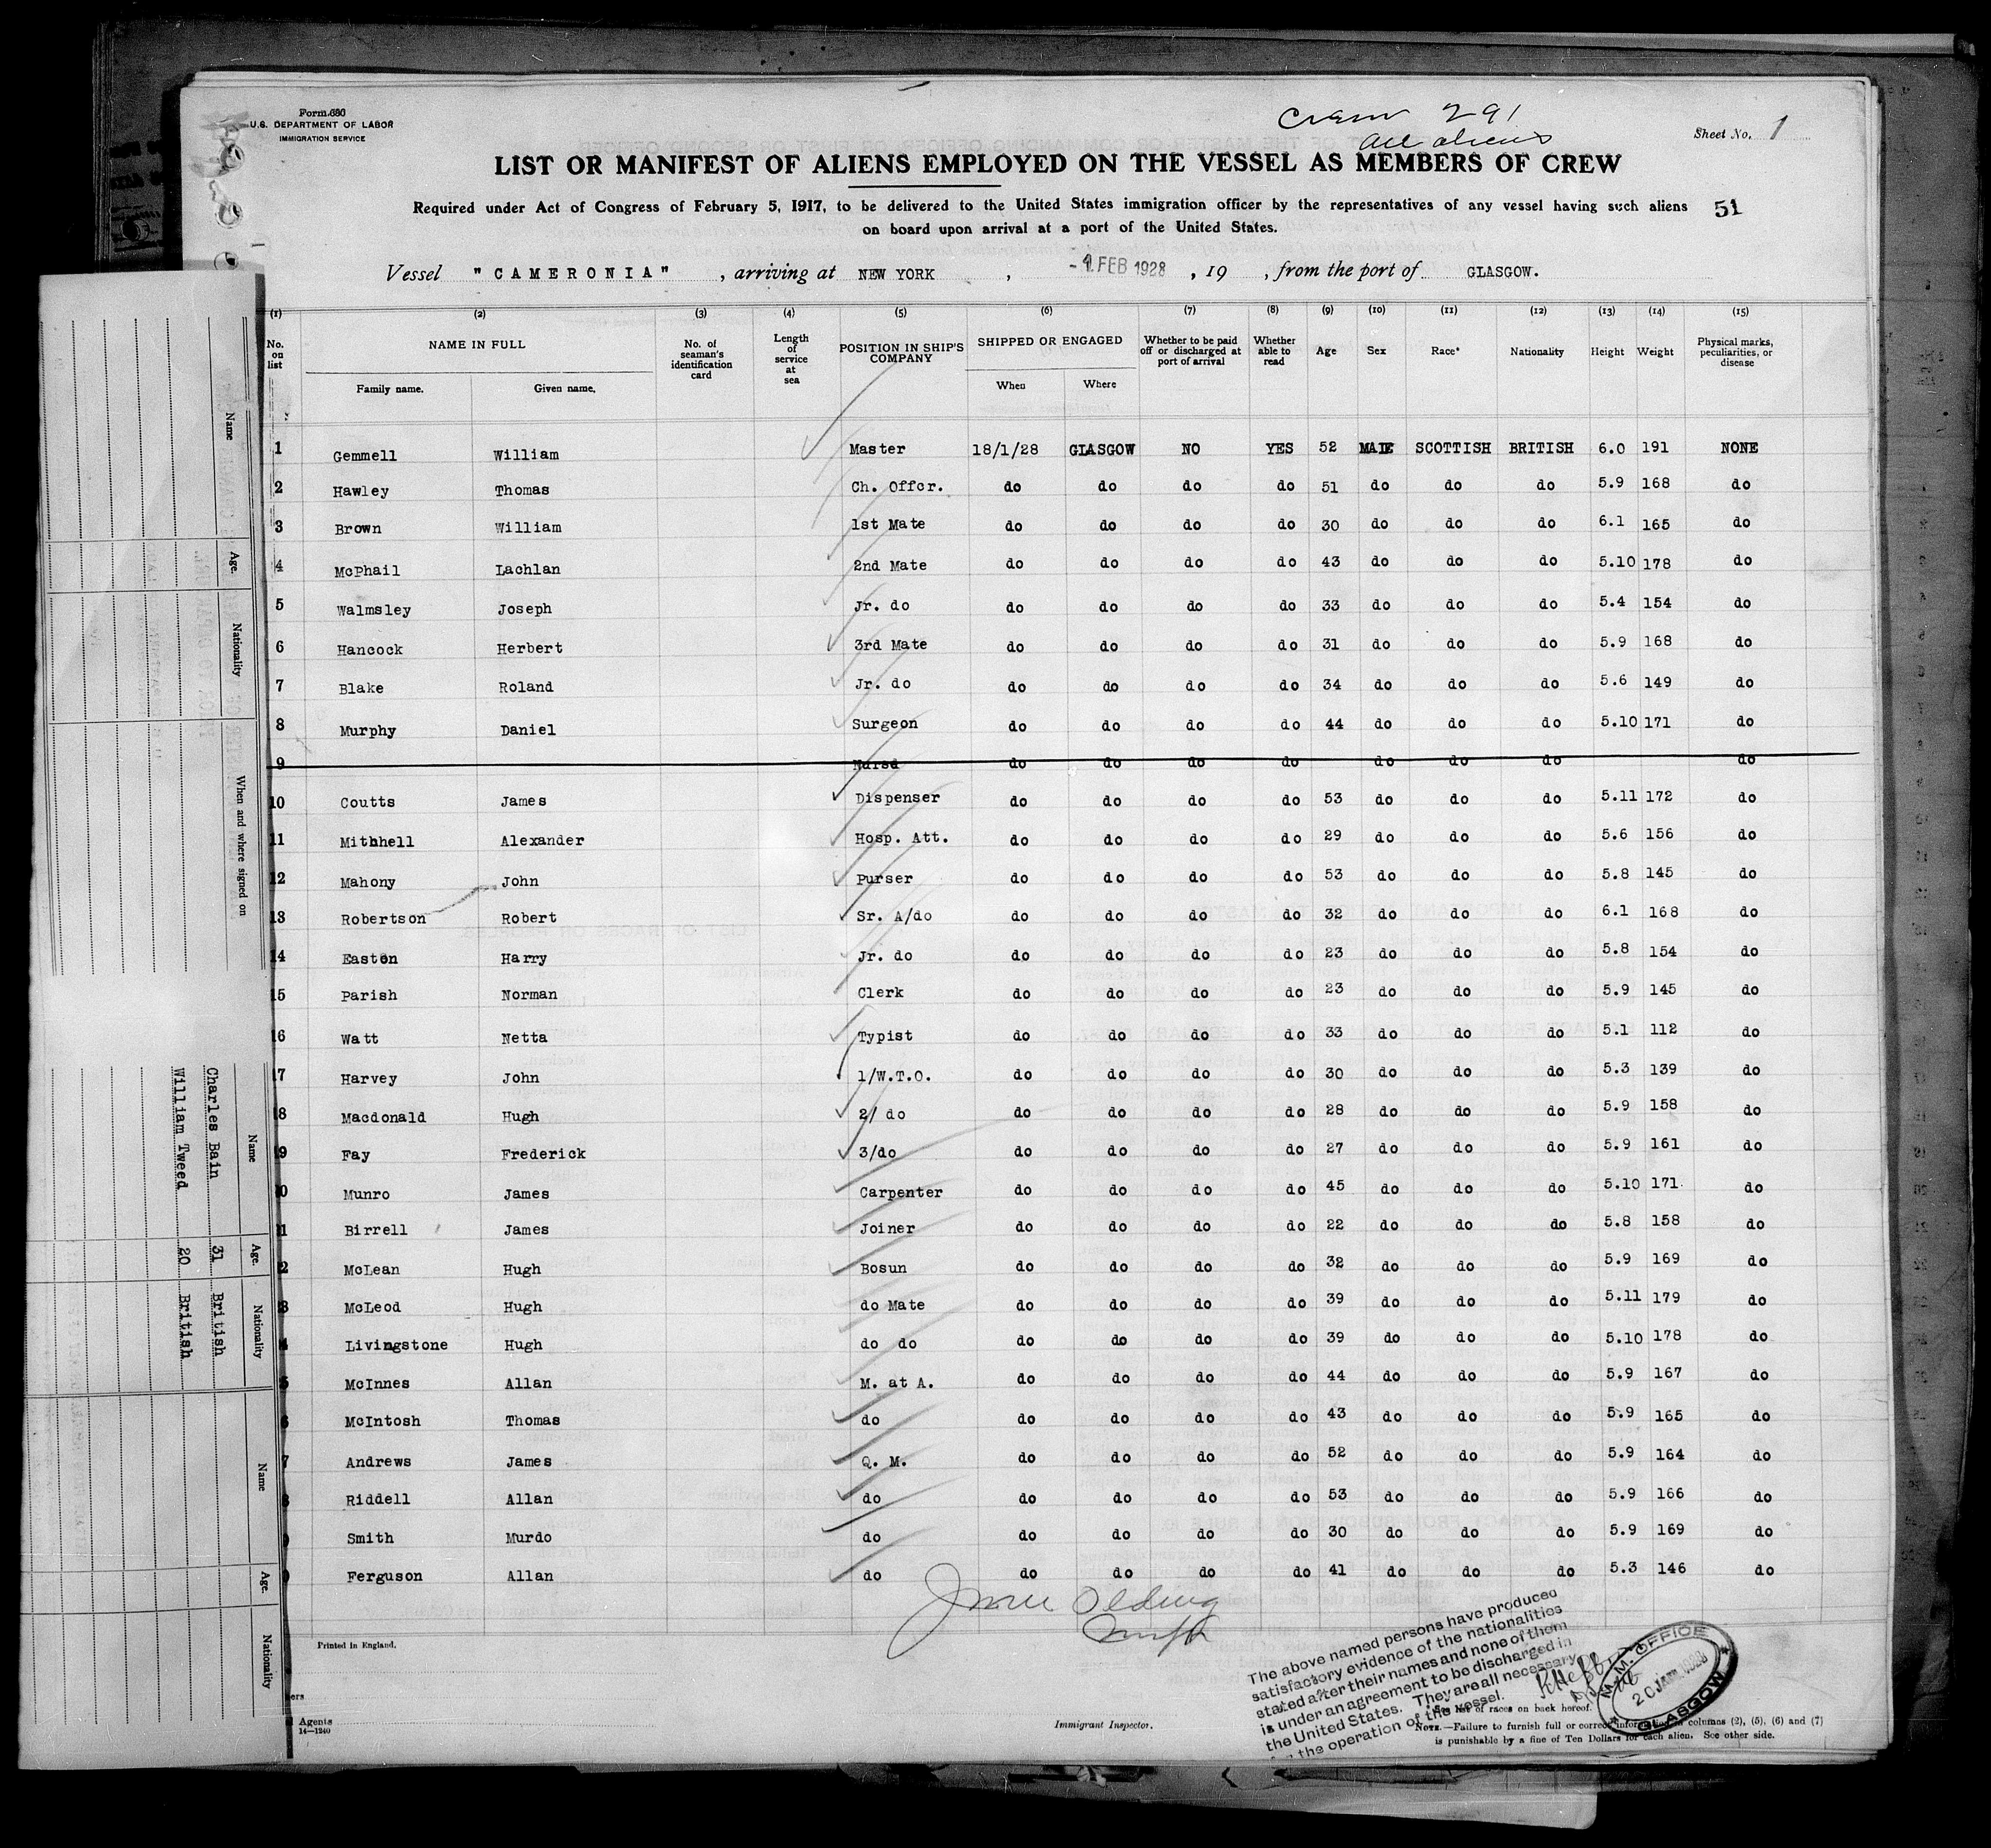 Form 680
U.S. DEPARTMENT OF LABOR
IMMIGRATION SERVICE
Crew 291
All aliens
Sheet No. 1
LIST OR MANIFEST OF ALIENS EMPLOYED ON THE VESSEL AS MEMBERS OF CREW
Required under Act of Congress of February 5, 1917, to be delivered to the United States immigration officer by the representatives of any vessel having such aliens
on board upon arrival at a port of the United States.
51
Vessel "CAMERONIA", arriving at NEW YORK, FEB 1928, 19 , from the port of GLASGOW.
(1) (2) (3) (4) (5) (6) (7) (8) (9) (10) (11) (12) (13) (14) (15)
No. on list NAME IN FULL Family name. Given name. No. of seaman's identification card Length of service at sea POSITION IN SHIP'S COMPANY SHIPPED OR ENGAGED When Where Whether to be paid off or discharged at port of arrival Whether able to read Age Sex Race* Nationality Height Weight Physical marks, peculiarities, or disease
1 Gemmell William Master 18/1/28 GLASGOW NO YES 52 MALE SCOTTISH BRITISH 6.0 191 NONE
2 Hawley Thomas Ch. Offcr. do do do do 51 do do do 5.9 168 do
3 Brown William 1st Mate do do do do 30 do do do 6.1 165 do
4 McPhail Lachlan 2nd Mate do do do do 43 do do do 5.10 178 do
5 Walmsley Joseph Jr. do do do do do 33 do do do 5.4 154 do
6 Hancock Herbert 3rd Mate do do do do 31 do do do 5.9 168 do
7 Blake Roland Jr. do do do do do 34 do do do 5.6 149 do
8 Murphy Daniel Surgeon do do do do 44 do do do 5.10 171 do
9 do do do do do do do do
10 Coutts James Dispenser do do do do 53 do do do 5.11 172 do
11 Mithhell Alexander Hosp. Att. do do do do 29 do do do 5.6 156 do
12 Mahony John Purser do do do do 53 do do do 5.8 145 do
13 Robertson Robert Sr. A/do do do do do 32 do do do 6.1 168 do
14 Easton Harry Jr. do do do do do 23 do do do 5.8 154 do
15 Parish Norman Clerk do do do do 23 do do do 5.9 145 do
16 Watt Netta Typist do do do do 33 do do do 5.1 112 do
7 Harvey John 1/W.T.O. do do do do 30 do do do 5.3 139 do
8 Macdonald Hugh 2/ do do do do do 28 do do do 5.9 158 do
9 Fay Frederick 3/do do do do do 27 do do do 5.9 161 do
0 Munro James Carpenter do do do do 45 do do do 5.10 171 do
1 Birrell James Joiner do do do do 22 do do do 5.8 158 do
2 McLean Hugh Bosun do do do do 32 do do do 5.9 169 do
3 McLeod Hugh do Mate do do do do 39 do do do 5.11 179 do
4 Livingstone Hugh do do do do do do 39 do do do 5.10 178 do
5 McInnes Allan M. at A. do do do do 44 do do do 5.9 167 do
McIntosh Thomas do do do do do 43 do do do 5.9 165 do
7 Andrews James Q. M. do do do do 52 do do do 5.9 164 do
Riddell Allan do do do do do 53 do do do 5.9 166 do
Smith Murdo do do do do do 30 do do do 5.9 169 do
Ferguson Allan do do do do do 41 do do do 5.3 146 do
Printed in England.
Agents
14—1240
Immigrant Inspector.
The above named persons have produced
satisfactory evidence of the nationalities
stated after their names and none of them
is under an agreement to be discharged in
the United States. They are all necessary
for the operation of the vessel.
M.M. OFFICE
20 JAN 1928
GLASGOW
list of races on back hereof.
NOTE.—Failure to furnish full or correct information in columns (2), (5), (6) and (7)
is punishable by a fine of Ten Dollars for each alien. See other side.
Name Age. Nationality When and where signed on
Name Age. Nationality
Charles Bain 31 British
William Tweed 20 British
Name Age. Nationality